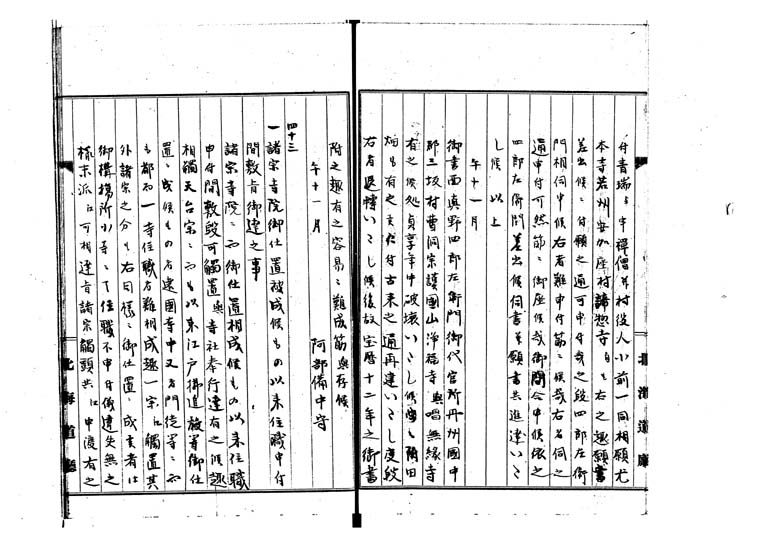 付青瑞与申禅僧并村役人小前一同相願尤
本寺若州安加座村諦惣寺[より]も右之趣願書
差出候ニ付願之通可申付哉之段四郎左衛
門相伺申候右者難申付筋ニ候哉右名伺之
通申付可然節ニ御座候哉御問合申候依之
四郎左衛門差出候伺書并願書共進達いたし
候以上
午十一月
御書面真野四郎左衛門御代官所丹州国中
郡三坂村曹洞宗護国山浄福寺与唱無縁寺
有之候処貞享年中破壊いたし候与附田
畑も有之候ニ付古来之通再建いたし度段
右者退転いたし候後故宝暦十二年之御書
附之趣有之容易ニ難成筋与存候
午十一月
阿部備中守
四十三
一諸宗寺院御仕置被成候もの以来住職申付
間敷旨御達之事
諸宗寺院ニ而御仕置相成候もの以来住職
申付間敷段可觸置与寺社奉行達有之候趣
相觸天台宗ニ而も以来江戸御追放等御仕
置ニ成候もの者遠国寺中又者門徒等ニ而
も都而一寺住職者難相成趣一宗江觸置其
外諸宗之分も右同様ニ御仕置ニ成候者は
御構場所外等ニても住職不申付儀違失無之
様末派江可相達旨諸宗觸頭共江申渡有之
北海道廳
北海道廳